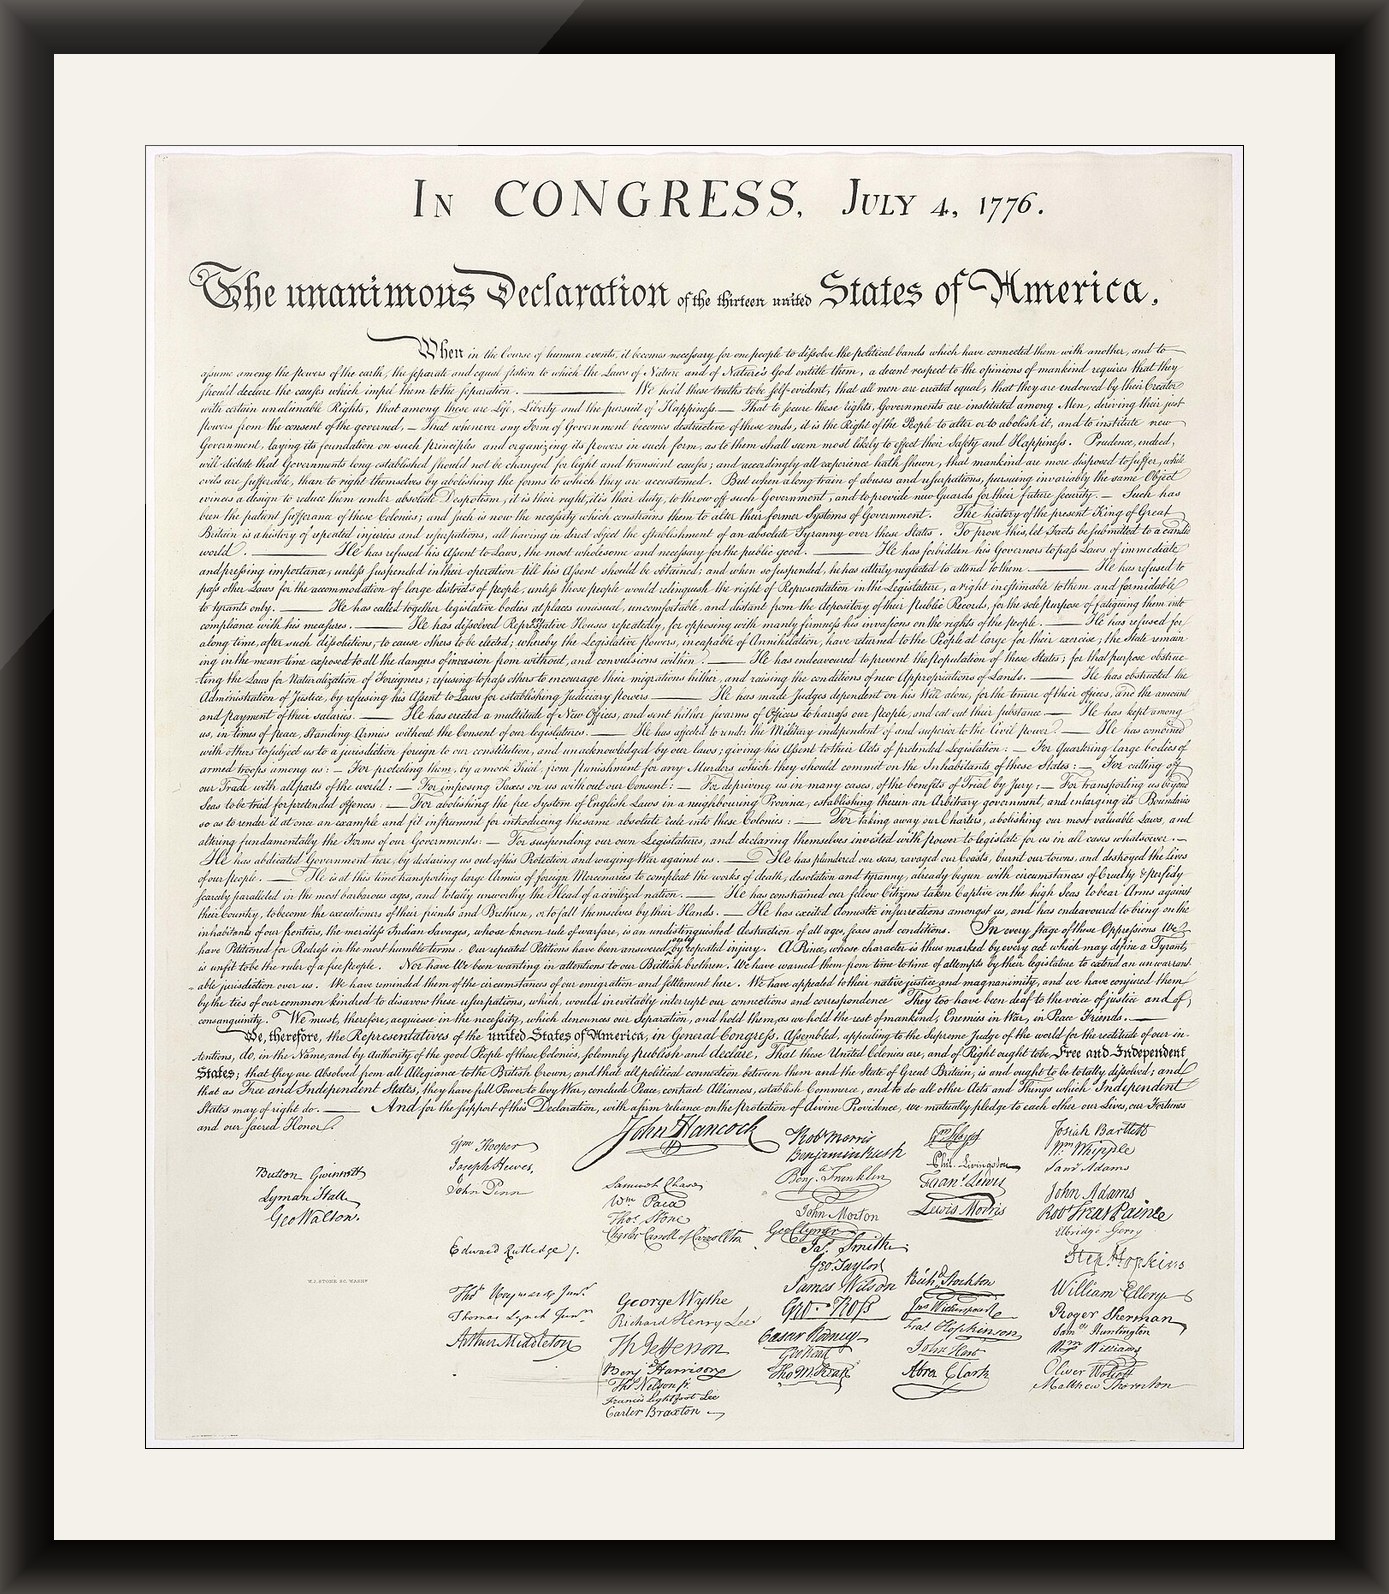 IN CONGRESS, JULY 4, 1776.
The unanimous Declaration of the thirteen united States of America,
When in the Course of human events, it becomes necessary for one people to dissolve the political bands which have connected them with another, and to
assume among the powers of the earth, the separate and equal station to which the Laws of Nature and of Nature's God entitle them, a decent respect to the opinions of mankind requires that they
should declare the causes which impel them to the separation. — We hold these truths to be self-evident, that all men are created equal, that they are endowed by their Creator
with certain unalienable Rights, that among these are Life, Liberty and the pursuit of Happiness — That to secure these rights, Governments are instituted among Men, deriving their just
powers from the consent of the governed, — That whenever any Form of Government becomes destructive of these ends, it is the Right of the People to alter or to abolish it, and to institute new
Government, laying its foundation on such principles and organizing its powers in such form, as to them shall seem most likely to effect their Safety and Happiness. Prudence, indeed,
will dictate that Governments long established should not be changed for light and transient causes; and accordingly all experience hath shewn, that mankind are more disposed to suffer, while
evils are sufferable, than to right themselves by abolishing the forms to which they are accustomed. But when a long train of abuses and usurpations, pursuing invariably the same Object
evinces a design to reduce them under absolute Despotism, it is their right, it is their duty, to throw off such Government, and to provide new Guards for their future security. — Such has
been the patient sufferance of these Colonies; and such is now the necessity which constrains them to alter their former Systems of Government. The history of the present King of Great
Britain is a history of repeated injuries and usurpations, all having in direct object the establishment of an absolute Tyranny over these States. To prove this, let Facts be submitted to a candid
world. — He has refused his Assent to Laws, the most wholesome and necessary for the public good. — He has forbidden his Governors to pass Laws of immediate
and pressing importance, unless suspended in their operation till his Assent should be obtained; and when so suspended, he has utterly neglected to attend to them. — He has refused to
pass other Laws for the accommodation of large districts of people, unless those people would relinquish the right of Representation in the Legislature, a right inestimable to them and formidable
to tyrants only. — He has called together legislative bodies at places unusual, uncomfortable, and distant from the depository of their Public Records, for the sole purpose of fatiguing them into
compliance with his measures. — He has dissolved Representative Houses repeatedly, for opposing with manly firmness his invasions on the rights of the people. — He has refused for
a long time, after such dissolutions, to cause others to be elected; whereby the Legislative powers, incapable of Annihilation, have returned to the People at large for their exercise; the State remain
ing in the mean time exposed to all the dangers of invasion from without, and convulsions within. — He has endeavoured to prevent the population of these States; for that purpose obstruc
ting the Laws for Naturalization of Foreigners; refusing to pass others to encourage their migrations hither, and raising the conditions of new Appropriations of Lands. — He has obstructed the
Administration of Justice, by refusing his Assent to Laws for establishing Judiciary powers — He has made Judges dependent on his Will alone, for the tenure of their offices, and the amount
and payment of their salaries. — He has erected a multitude of New Offices, and sent hither swarms of Officers to harrass our people, and eat out their substance — He has kept among
us, in times of peace, Standing Armies without the Consent of our legislatures. — He has affected to render the Military independent of and superior to the Civil power. — He has combined
with others to subject us to a jurisdiction foreign to our constitution, and unacknowledged by our laws; giving his Assent to their Acts of pretended Legislation: — For Quartering large bodies of
armed troops among us: — For protecting them, by a mock Trial, from punishment for any Murders which they should commit on the Inhabitants of these States: — For cutting off
our Trade with all parts of the world: — For imposing Taxes on us without our Consent: — For depriving us in many cases, of the benefits of Trial by Jury: — For transporting us beyond
Seas to be tried for pretended offences: — For abolishing the free System of English Laws in a neighbouring Province, establishing therein an Arbitrary government, and enlarging its Boundaries
so as to render it at once an example and fit instrument for introducing the same absolute rule into these Colonies: — For taking away our Charters, abolishing our most valuable Laws, and
altering fundamentally the Forms of our Governments: — For suspending our own Legislatures, and declaring themselves invested with power to legislate for us in all cases whatsoever. —
He has abdicated Government here, by declaring us out of his Protection and waging War against us. — He has plundered our seas, ravaged our Coasts, burnt our towns, and destroyed the lives
of our people. — He is at this time transporting large Armies of foreign Mercenaries to compleat the works of death, desolation and tyranny, already begun with circumstances of Cruelty & perfidy
scarcely paralleled in the most barbarous ages, and totally unworthy the Head of a civilized nation. — He has constrained our fellow Citizens taken Captive on the high Seas to bear Arms against
their Country, to become the executioners of their friends and Brethren, or to fall themselves by their Hands. — He has excited domestic insurrections amongst us, and has endeavoured to bring on the
inhabitants of our frontiers, the merciless Indian Savages, whose known rule of warfare, is an undistinguished destruction of all ages, sexes and conditions. In every stage of these Oppressions We
have Petitioned for Redress in the most humble terms: Our repeated Petitions have been answered only by repeated injury. A Prince, whose character is thus marked by every act which may define a Tyrant,
is unfit to be the ruler of a free people. Nor have We been wanting in attentions to our Brittish brethren. We have warned them from time to time of attempts by their legislature to extend an unwarrant
able jurisdiction over us. We have reminded them of the circumstances of our emigration and settlement here. We have appealed to their native justice and magnanimity, and we have conjured them
by the ties of our common kindred to disavow these usurpations, which, would inevitably interrupt our connections and correspondence They too have been deaf to the voice of justice and of
consanguinity. We must, therefore, acquiesce in the necessity, which denounces our Separation, and hold them, as we hold the rest of mankind, Enemies in War, in Peace Friends. —
We, therefore, the Representatives of the united States of America, in General Congress, Assembled, appealing to the Supreme Judge of the world for the rectitude of our in-
tentions, do, in the Name, and by Authority of the good People of these Colonies, solemnly publish and declare, That these United Colonies are, and of Right ought to be Free and Independent
States; that they are Absolved from all Allegiance to the British Crown, and that all political connection between them and the State of Great Britain, is and ought to be totally dissolved; and
that as Free and Independent States, they have full Power to levy War, conclude Peace, contract Alliances, establish Commerce, and to do all other Acts and Things which Independent
States may of right do. — And for the support of this Declaration, with a firm reliance on the protection of divine Providence, we mutually pledge to each other our Lives, our Fortunes
and our sacred Honor.
Button Gwinnett
Lyman Hall
Geo Walton.
W.J. STONE SC. WASHN
Wm Hooper
Joseph Hewes,
John Penn
Edward Rutledge /.
Thos Heyward Junr.
Thomas Lynch Junr.
Arthur Middleton
John Hancock
Samuel Chase
Wm Paca
Thos. Stone
Charles Carroll of Carrollton
George Wythe
Richard Henry Lee
Th Jefferson
Benj Harrison
Thos Nelson jr.
Francis Lightfoot Lee
Carter Braxton
Robt Morris
Benjamin Rush
Benj. Franklin
John Morton
Geo Clymer
Jas. Smith.
Geo. Taylor
James Wilson
Geo. Ross
Caesar Rodney
Geo Read
Tho M:Kean
Wm Floyd
Phil. Livingston
Frans. Lewis
Lewis Morris
Richd Stockton
Jno Witherspoon
Fras. Hopkinson
John Hart
Abra Clark
Josiah Bartlett
Wm Whipple
Saml Adams
John Adams
Robt Treat Paine
Elbridge Gerry
Step. Hopkins
William Ellery
Roger Sherman
Saml Huntington
Wm Williams
Oliver Wolcott
Matthew Thornton